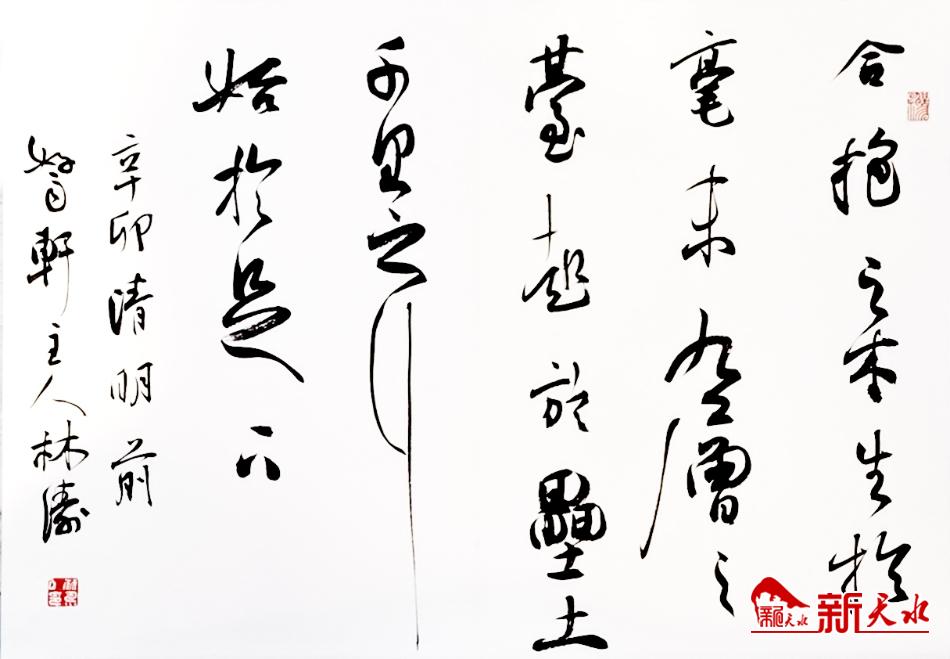 合抱之木生於
毫末九層之
臺起於壘土
千里之行
始於足下
辛卯清明前
軒主人林濤
新天水
新天水